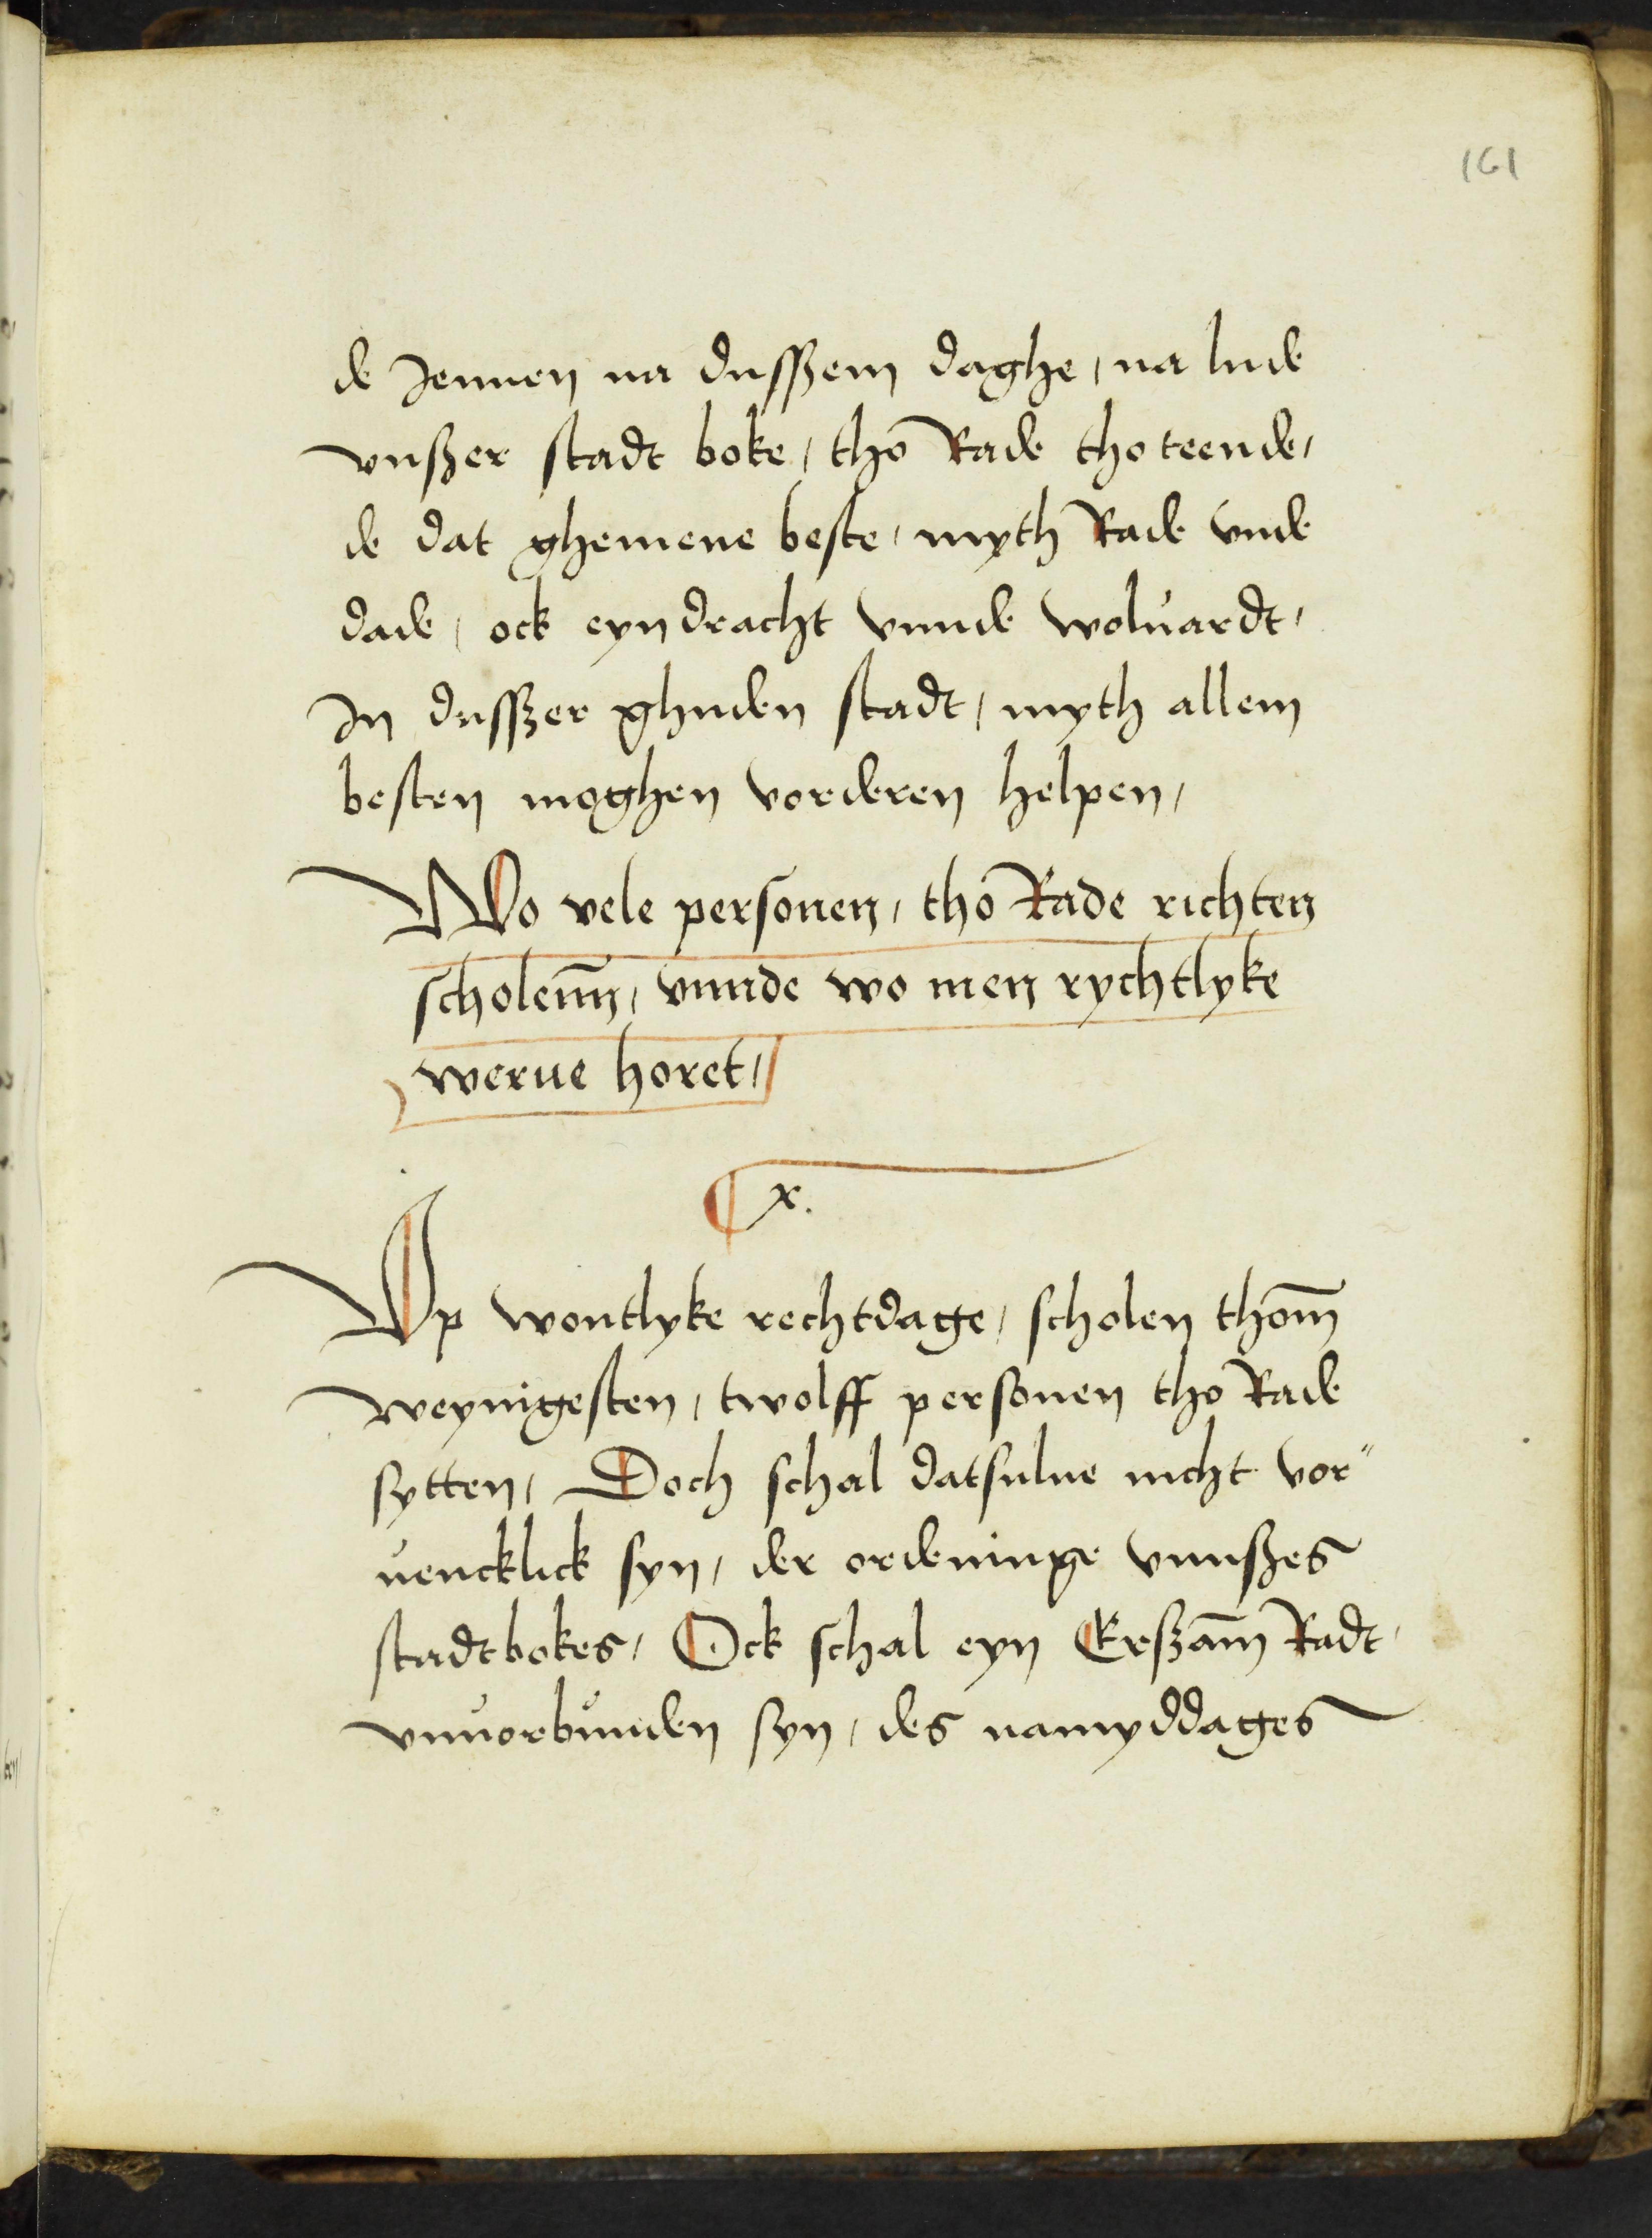 161
de Jennen na dusszem daghe / na lude
vnszer stadt boke / tho Rade tho teende /
de dat ghemene beste / myth Rade vnde
dade / ock eyndracht vnnde woluardt /
In dusszer ghuden stadt / myth allem
besten moghen vorderen helpen /
Wo vele personen / tho Rade richten
scholenn̄ / vnnde wo men rychtlyke
werue horet /
¶ x.
Vp wontlyke rechtdage / scholen thom̄
weynigesten / twolff personen tho Rade
sytten / Doch schal datsulue nicht vor"
uencklick syn / der ordeninge vnnszes
stadtbokes / Ock schal eyn Erszam̄ Radt /
vnuorbunden syn / des namyddages